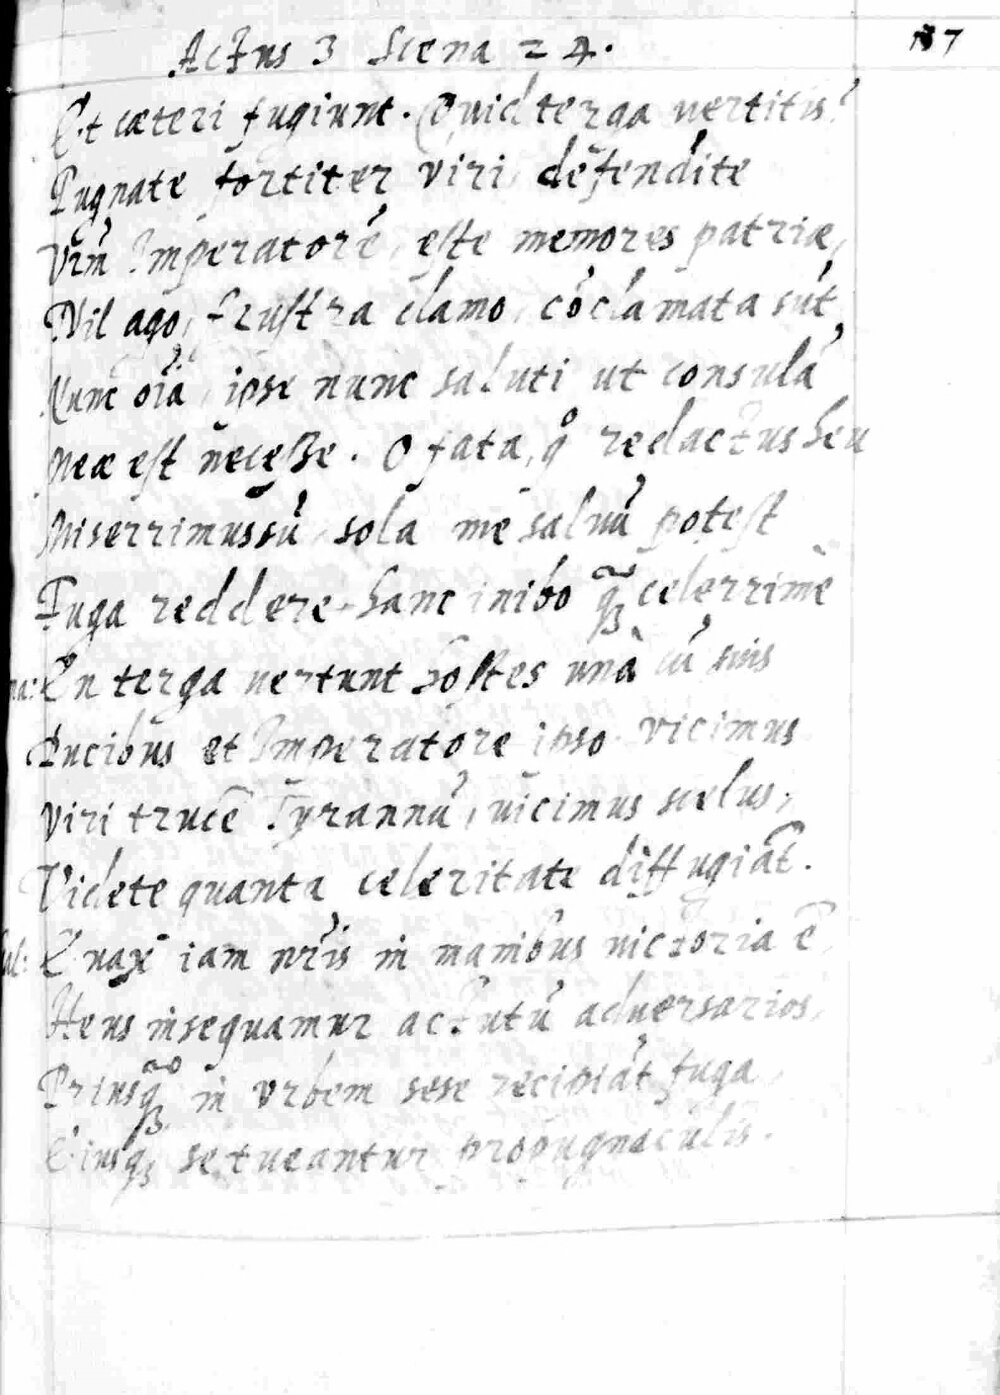 Actus 3 Scena 24.
137
Et cæteri fugiunt. Quid terga vertitis?
Pugnate fortiter viri, defendite
Vrm̃ Imperatorē, este memores patriæ,
Nil ago, frustra clamo, cōclamata sūt
Nunc oīa, ipse nunc saluti ut consulā
Meæ est necesse. O fata, q° redactus heu
Miserrimus sū, sola me saluū potest
Fuga reddere. hanc inibo q̃ꝫ celerrimè
En terga uertunt hostes unà cū suis
Ducibus et Imperatore ipso. vicimus
Viri trucē Tyrannū, uicimus scelus,
Videte quanta celeritate diffugiāt.
Euax iam nr̃is in manibus uictoria ē,
Heus insequamur actutū aduersarios,
Priusq̃ꝫ in vrbem sese recipiāt fuga
Eiusqꝫ se tueantur propugnaculis.